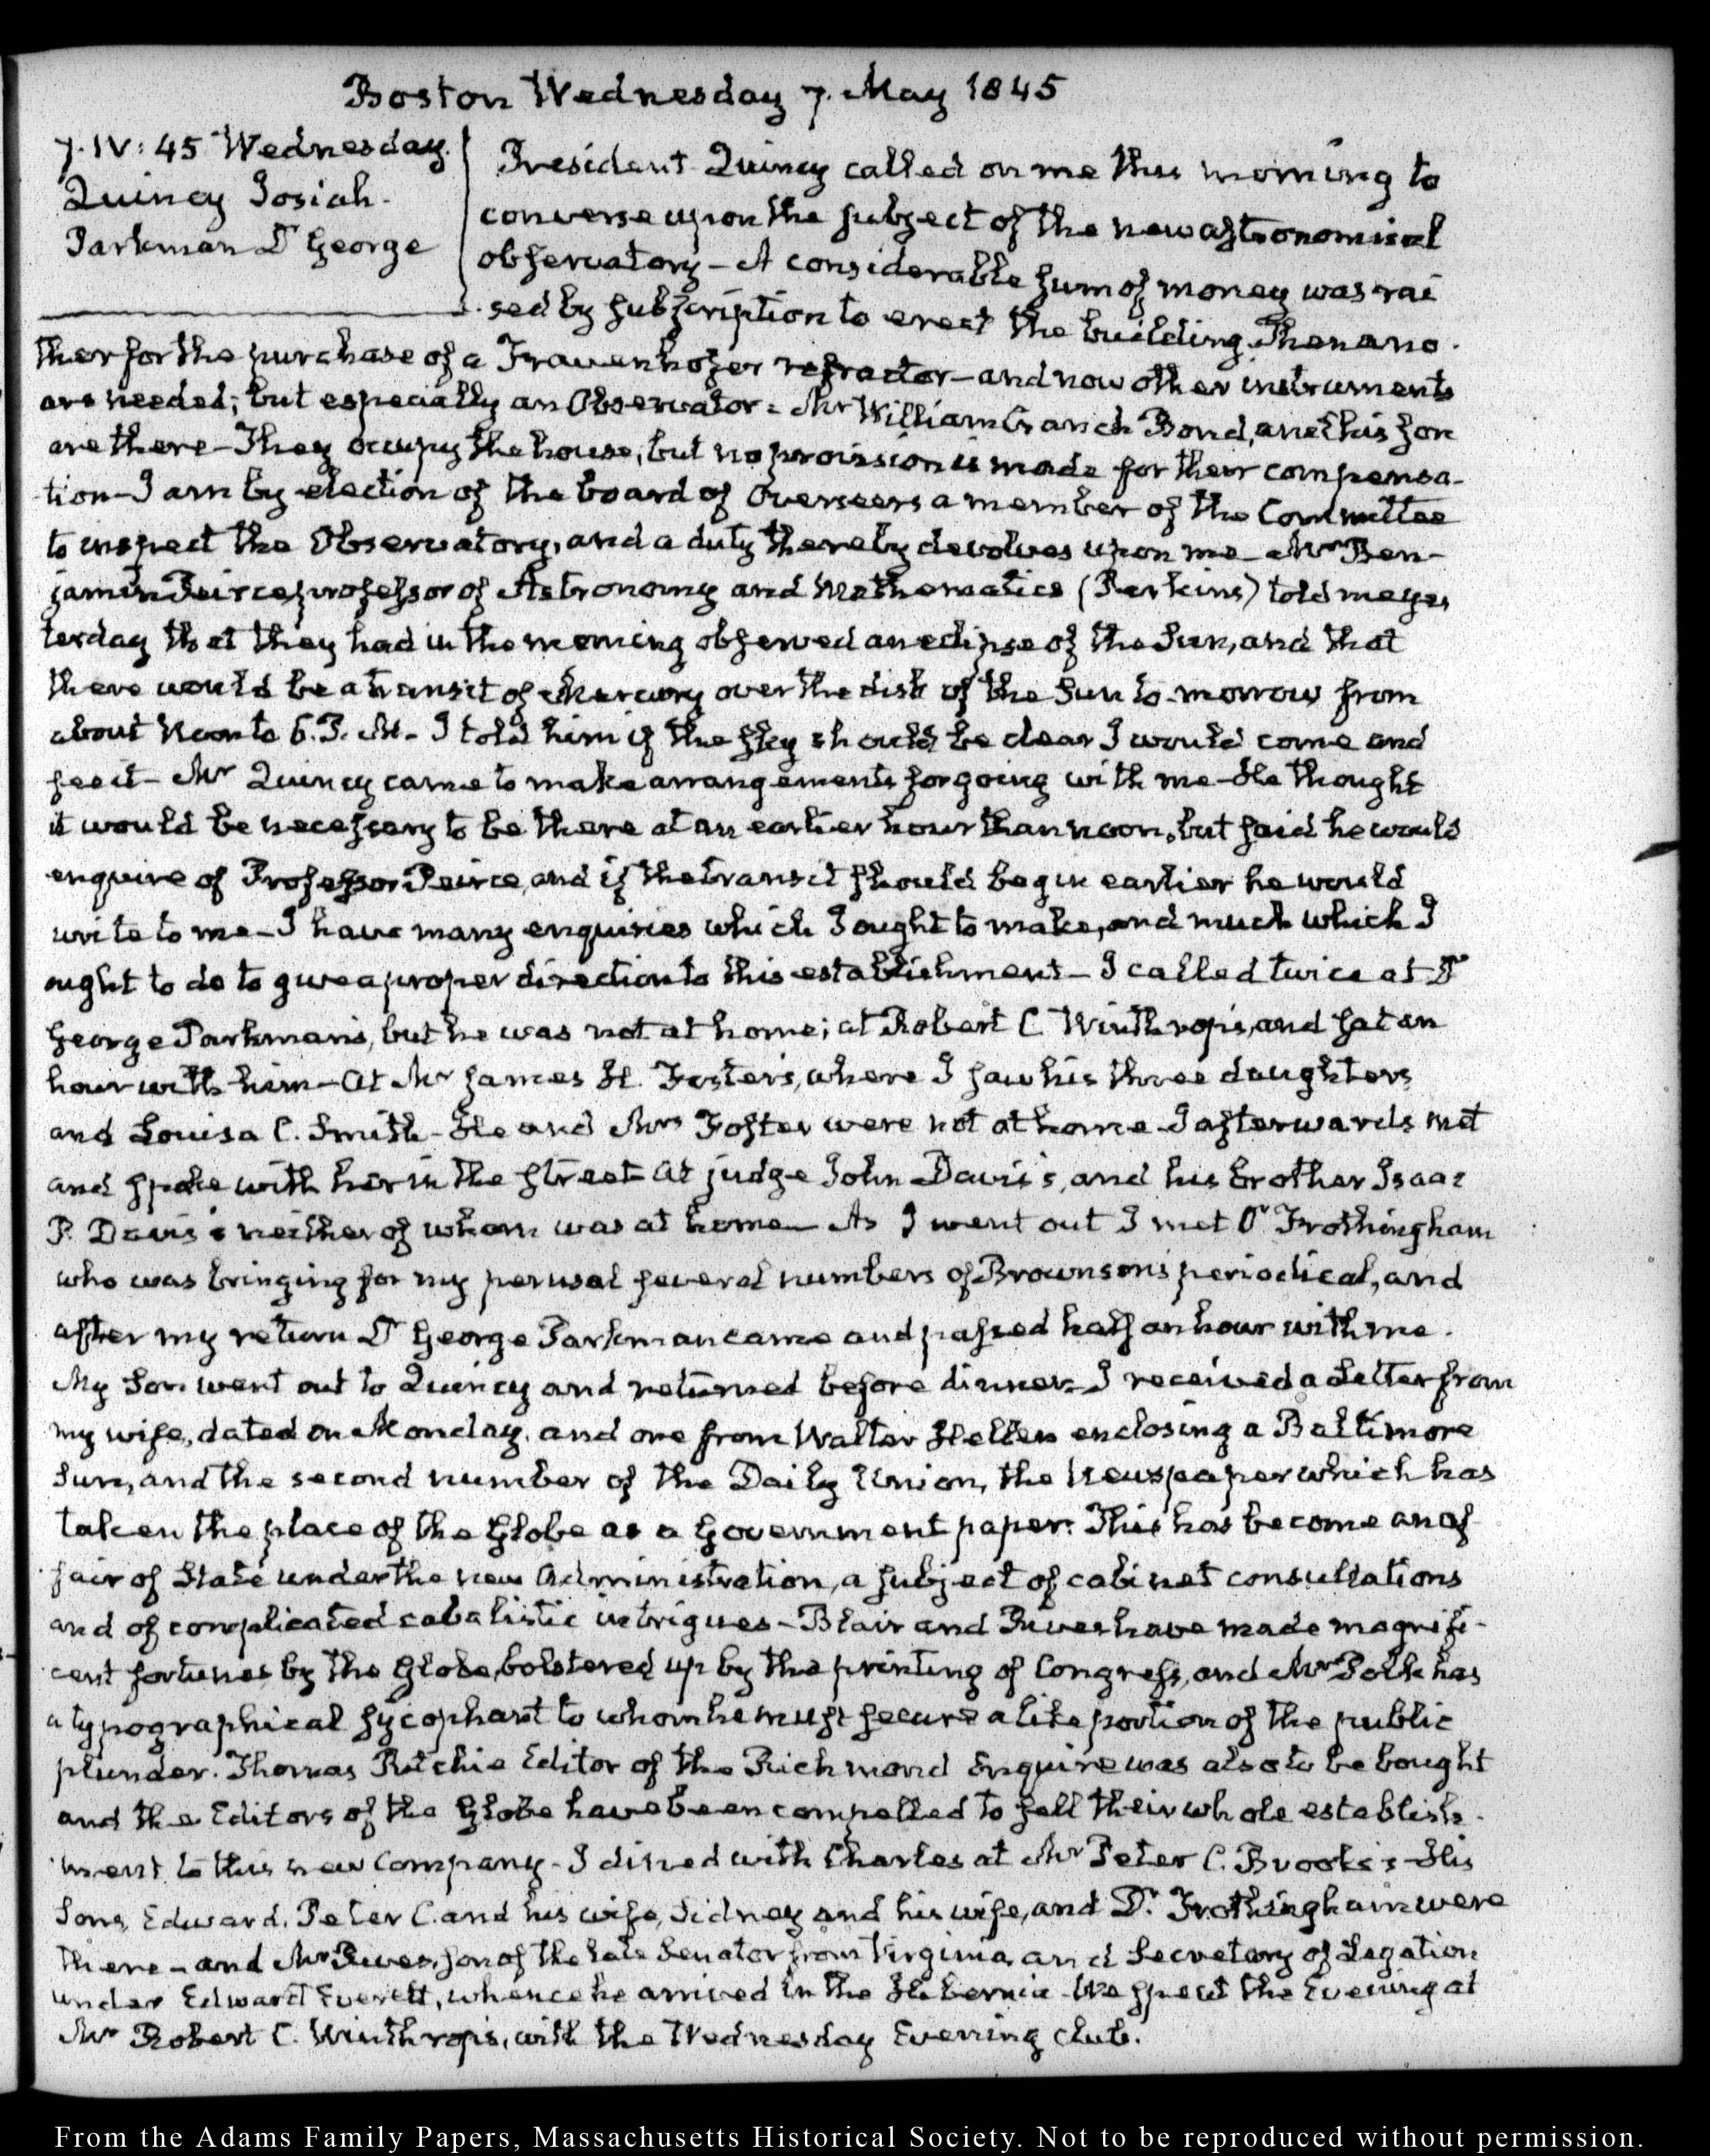 Boston Wednesday 7. May 1845
7. IV: 45 Wednesday.
Quincy Josiah.
Parkman Dr George
President Quincy called on me this morning to
converse upon the subject of the new astronomical
observatory – A considerable sum of money was rai
sed by subscription to erect the building. Then ano
ther for the purchase of a Frauenhofer refractor – and now other instruments
are needed; but especially an Observator. Mr William Cranch Bond, and his son
are there – They occupy the house, but no provision is made for their compensa-
tion – I am by election of the board of Overseers a member of the Committee
to inspect the Observatory, and a duty thereby devolves upon me – Mr Ben-
jamin Peirce, professor of Astronomy and Mathematics (Perkins) told me yes
terday that they had in the morning observed an eclipse of the Sun, and that
there would be a transit of Mercury over the disk of the Sun to-morrow from
about Noon to 6. P. M. – I told him if the sky should be clear I would come and
see it – Mr Quincy came to make arrangements for going with me – He thought
it would be necessary to be there at an earlier hour than noon, but said he would
enquire of Professor Peirce, and if the transit should begin earlier he would
write to me – I have many enquiries which I ought to make, and much which I
ought to do to give a proper direction to this establishment – I called twice at Dr
George Parkman's, but he was not at home; at Robert C Winthrop's, and sat an
hour with him – At Mr James H. Foster's, where I saw his three daughters
and Louisa C. Smith – He and Mrs Foster were not at home – I afterwards met
and spoke with her in the street – At judge John Davis's, and his brother Isaac
P. Davis's neither of whom was at home – As I went out I met Dr Frothingham
who was bringing for my perusal several numbers of Brownson's periodical, and
after my return Dr George Parkman came and passed half an hour with me.
My Son went out to Quincy and returned before dinner – I received a Letter from
my wife, dated on Monday, and one from Walter Hellen enclosing a Baltimore
Sun, and the second number of the Daily Union, the Newspaper which has
taken the place of the Globe as a Government paper. This has become an af
fair of State under the new Administration, a subject of cabinet consultations
and of complicated cabalistic intrigues – Blair and Rives have made magnifi-
cent fortunes by the Globe, bolstered up by the printing of Congress, and Mr Polk has
a typographical sycophant to whom he must secure a like portion of the public
plunder. Thomas Ritchie Editor of the Richmond Enquire was also to be bought
and the Editors of the Globe have been compelled to sell their whole establish-
ment to this new Company – I dined with Charles at Mr Peter C. Brooks's – His
Sons, Edward, Peter C. and his wife, Sidney and his wife, and Dr. Frothingham were
there – and Mr Rives, son of the late Senator from Virginia, and Secretary of Legation
under Edward Everett, whence he arrived in the Hibernia – We spent the Evening at
Mr Robert C. Winthrop's, with the Wednesday Evening club.
From the Adams Family Papers, Massachusetts Historical Society. Not to be reproduced without permission.